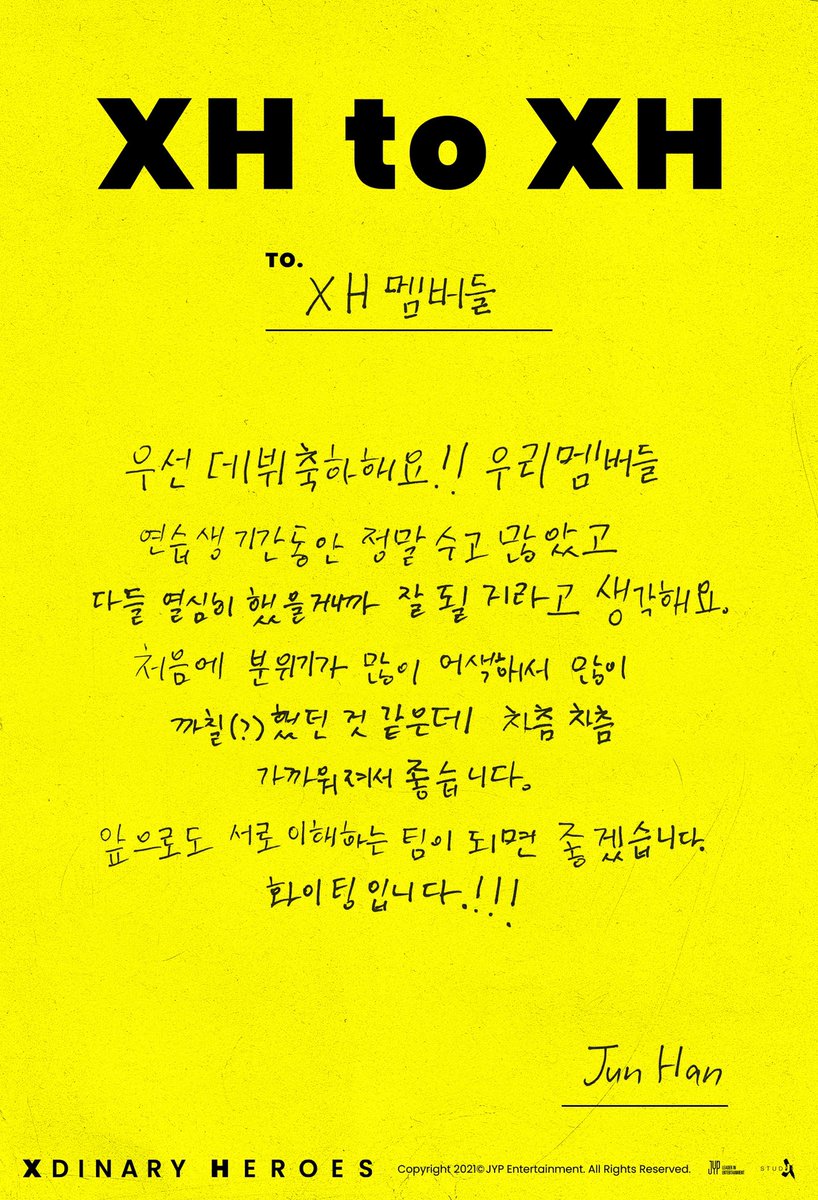 XH to XH
TO.
XH 멤버들
우선 데뷔축하해요!! 우리멤버들
연습생 기간동안 정말 수고 많았고
다들 열심히 했을거니까 잘 될 거라고 생각해요.
처음에 분위기가 많이 어색해서 많이
까칠(?)했던 것 같은데 차츰 차츰
가까워져서 좋습니다.
앞으로도 서로 이해하는 팀이 되면 좋겠습니다.
화이팅입니다.!!!
Jun Han
XDINARY HEROES
Copyright 2021©JYP Entertainment. All Rights Reserved.
JYP LEADER IN ENTERTAINMENT
STUDIO J